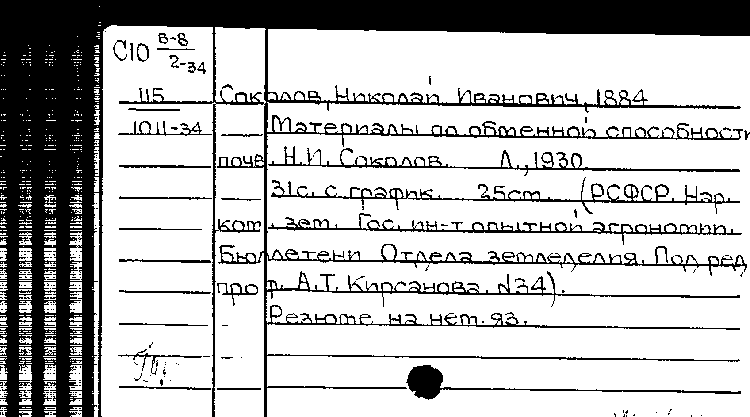 С10 В-8/2-34
115 Соколов, Николай Иванович, 1884
1011-34 Материалы по обменной способности
почв. Н.И. Соколов. Л., 1930
31с. с график. 25см. (РСФСР. Нар.
ком. зем. Гос. ин-т опытной агрономии.
Бюллетени Отдела земледелия. Под ред
проф. А.Т. Кирсанова. №34).
Резюме на нем. яз.